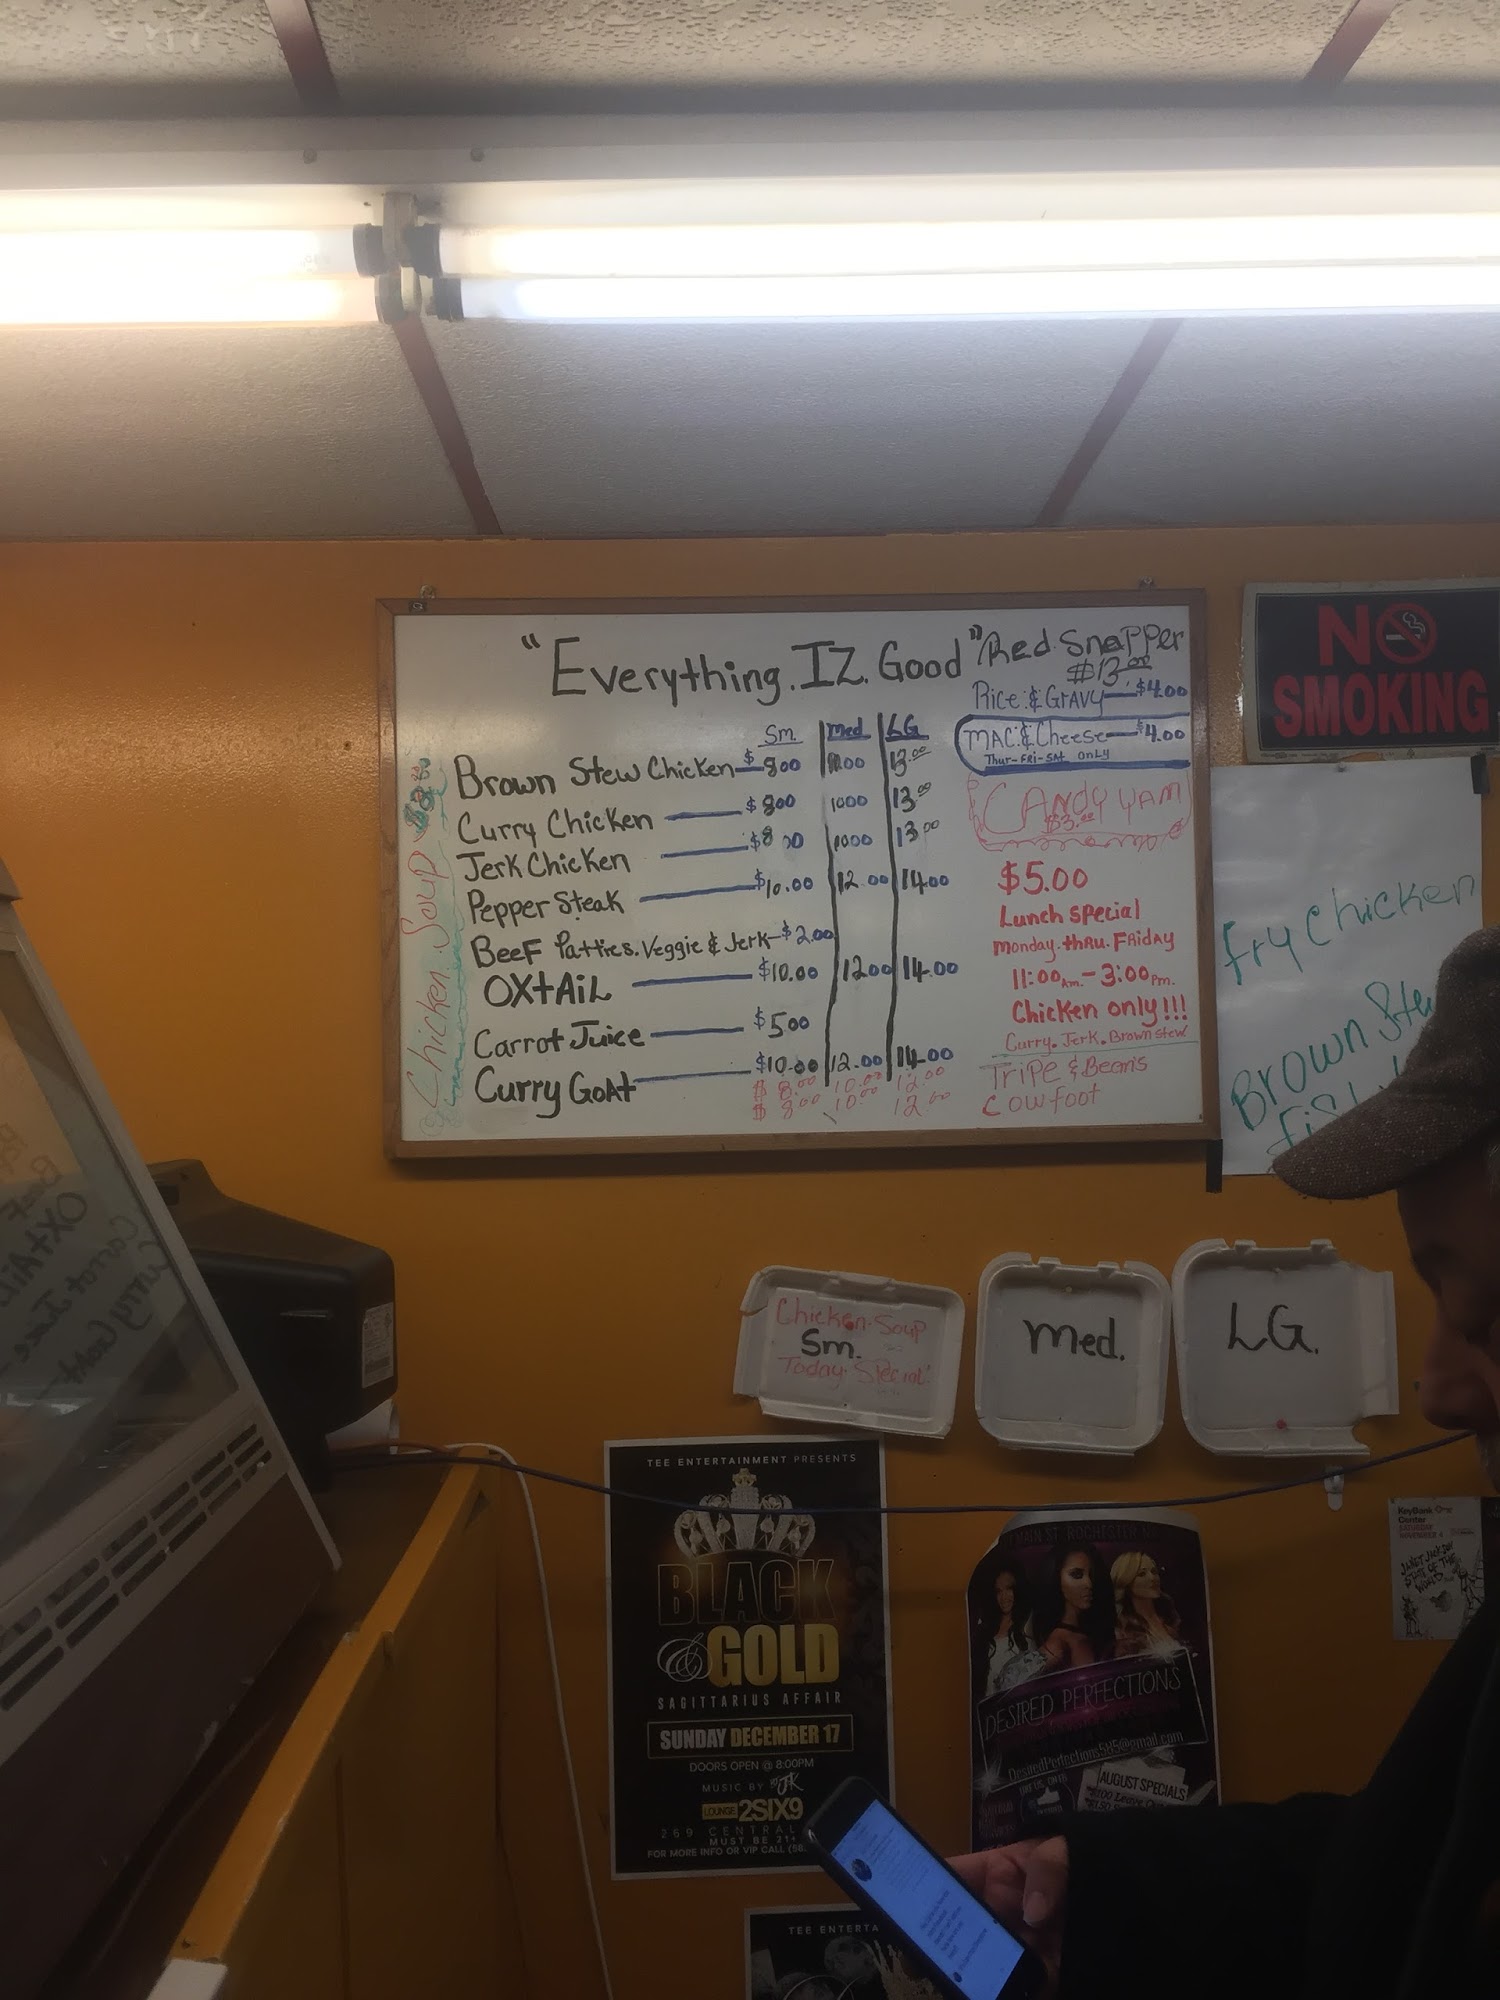 "Everything. IZ. Good"
Red. Snapper
$13.00
Rice & Gravy $4.00
MAC & Cheese $4.00
Thur-FRI-SAT only
CANDY YAM
$3.00
Sm. med LG
Brown Stew Chicken $8.00 13.00
Curry Chicken $800 1000 13.00
Jerk Chicken $8.00 1000 13.00
Pepper Steak $10.00 12.00 14.00
BeeF Patties. Veggie & Jerk $2.00
OXtAiL $10.00 12.00 14.00
Carrot Juice $5.00
Curry GoAt $10.00 12.00 14.00
$ 8.00 10.00 12.00
$ 8.00 10.00 12.00
Chicken. Soup
$5.00
Lunch special
monday. thru. FRiday
11:00 Am. - 3:00 Pm.
Chicken only!!!
Curry. Jerk. Brown stew
Tripe & Beans
Cow foot
NO
SMOKING
Fry Chicken
Brown
Chicken. Soup
Sm.
Today. Special!
med.
LG.
OXtAiL
Carrot Juice
Curry GoAt
TEE ENTERTAINMENT PRESENTS
BLACK
& GOLD
SAGITTARIUS AFFAIR
SUNDAY DECEMBER 17
DOORS OPEN @ 8:00PM
MUSIC BY
LOUNGE 2SIX9
269 CENTRAL
MUST BE 21+
FOR MORE INFO OR VIP CALL
MAIN ST. ROCHESTER
DESIRED PERFECTIONS
DesiredPerfections585@gmail.com
AUGUST SPECIALS
KeyBank
Center
SATURDAY
NOVEMBER 4
JANET JACKSON
STATE OF THE
WORLD
TEE ENTERTA